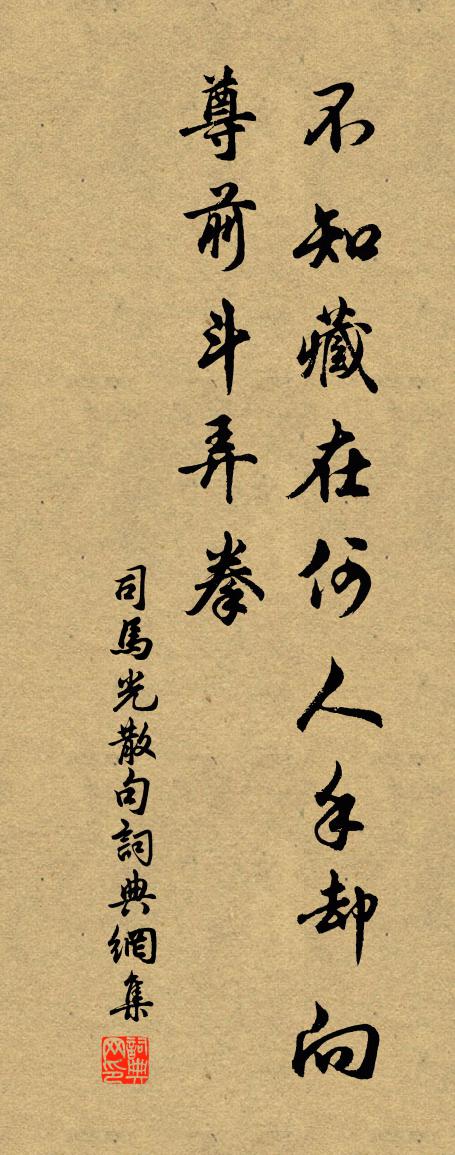 不知藏在何人手却向
尊前斗弄拳
司馬光散句詞典網集
詞典网印